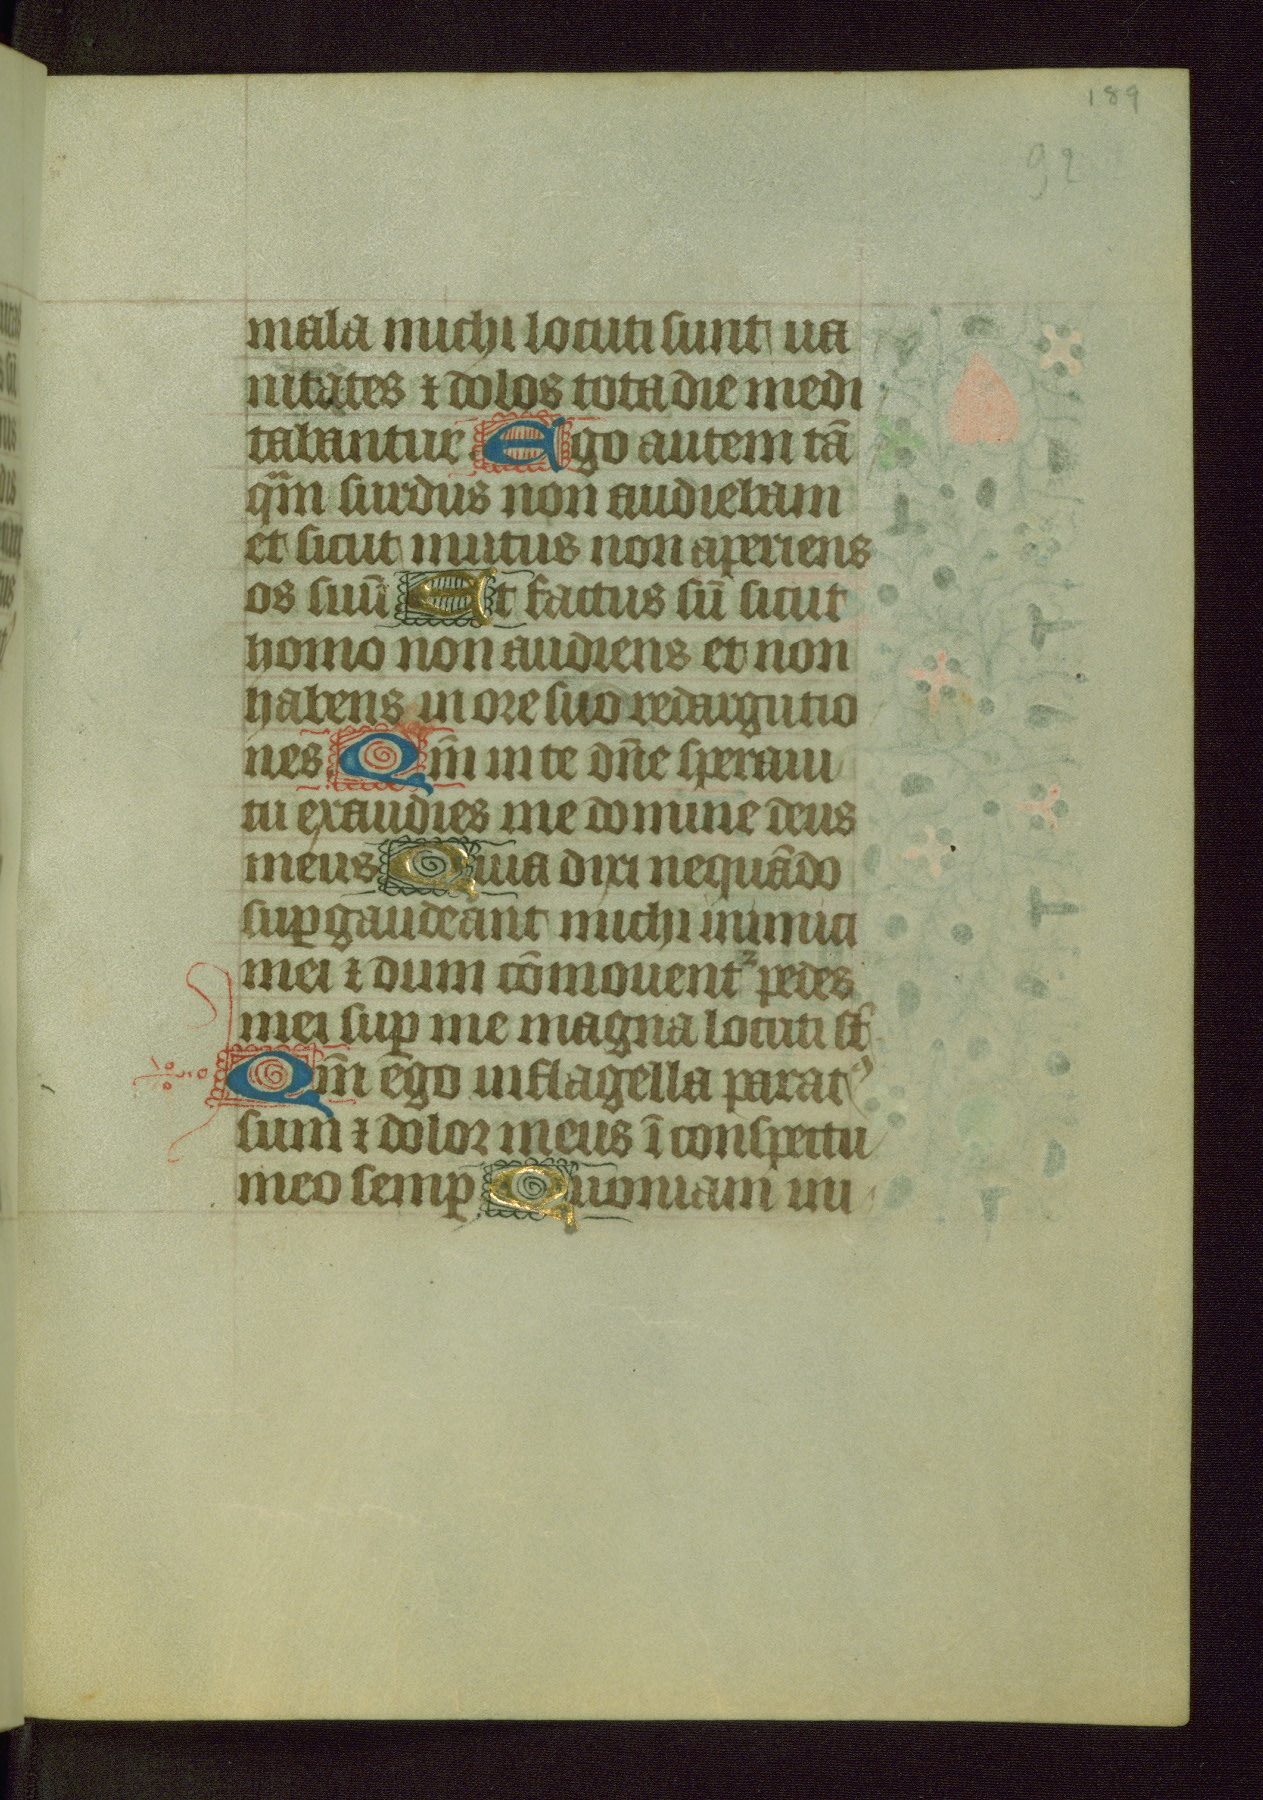 189
92
mala michi locuti sunt ua
nitates ⁊ dolos tota die medi
tabantur Ego autem tā
qm̄ surdus non audiebam
et sicut mutus non aperiens
os suū Et factus sū sicut
homo non audiens et non
habens in ore suo redargutio
nes Qm̄ in te dn̄e speraui
tu exaudies me domine deus
meus Quia dixi nequādo
suꝑgaudeant michi inimici
mei ⁊ dum cōmouent᷑ pedes
mei suꝑ me magna locuti st̄
Qm̄ ego in flagella paratꝰ
sum ⁊ dolor meus ī conspectu
meo semꝑ Quoniam ini